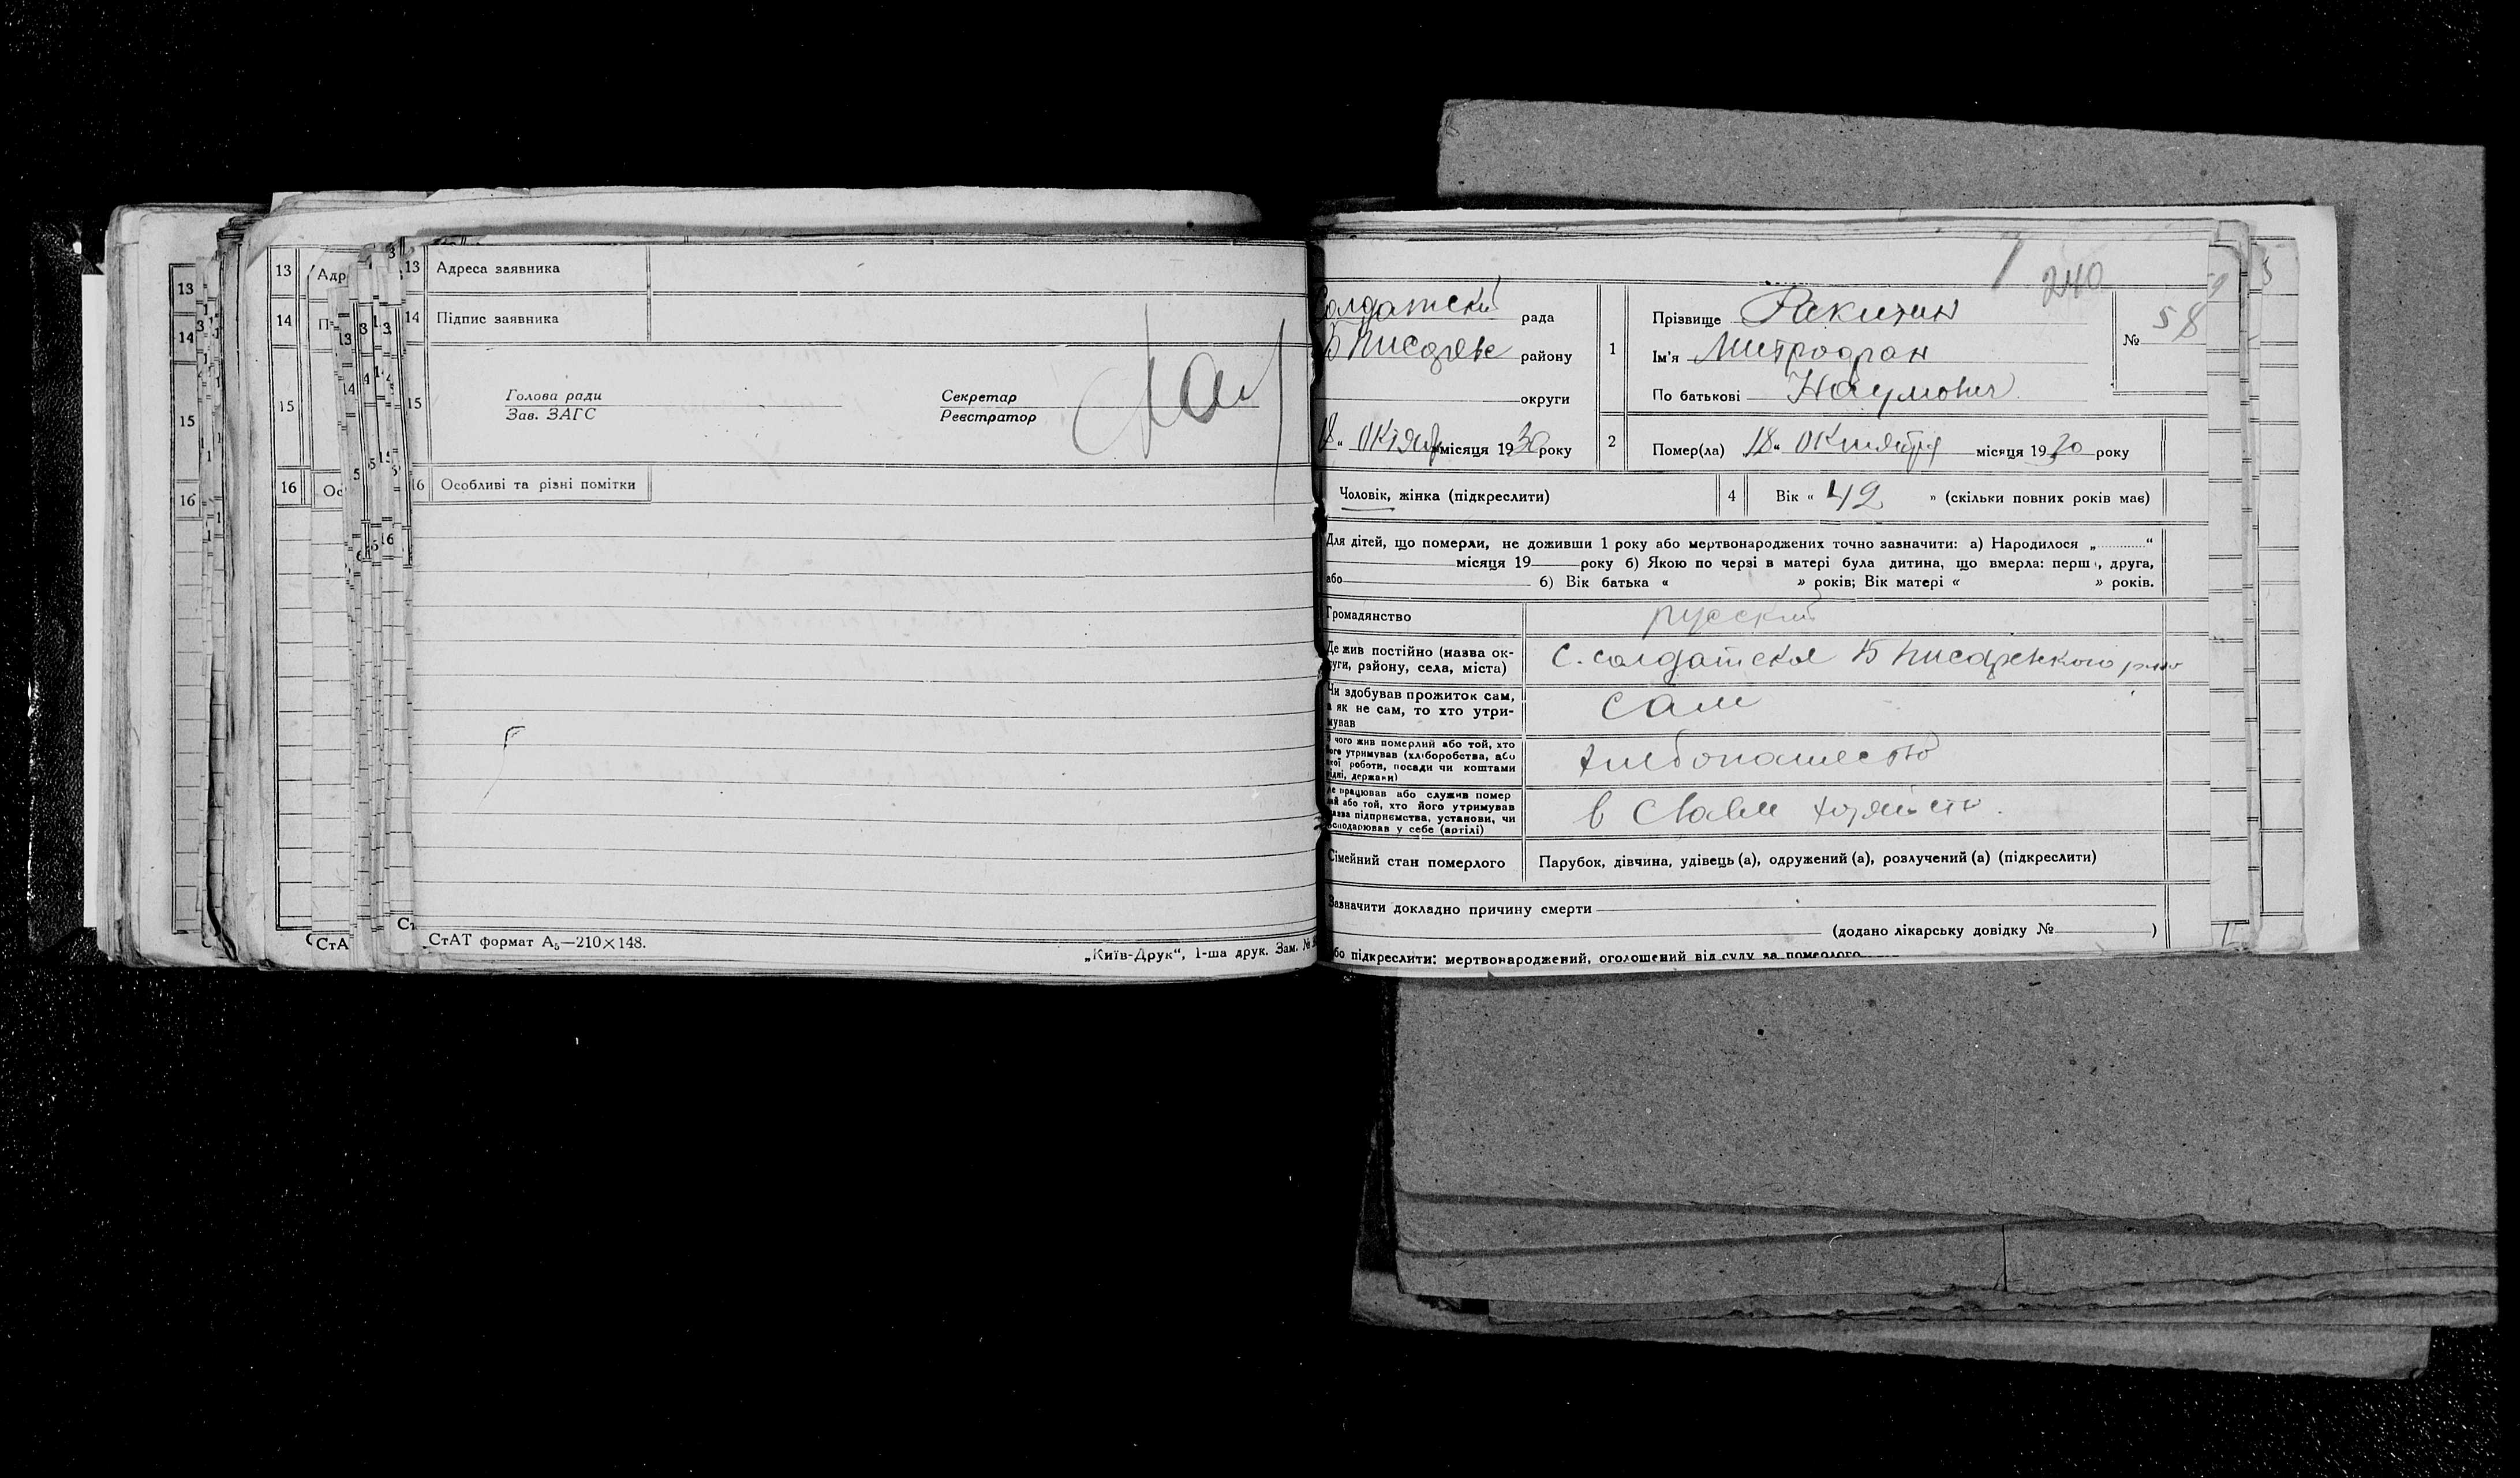 13 Адреса заявника
14 Підпис заявника
15 Голова ради
Зав. ЗАГС
Секретар
Реєстратор
16 Особливі та різні помітки
СтАТ формат А₅—210×148.
„Київ-Друк“, 1-ша друк. Зам. №
240
Солдатский рада
Б Писарев району
округи
18 „ Октяб місяця 1930 року
1 Прізвище Ракитин
Ім'я Митрофан
По батькові Наумович
№ 58
2 Помер(ла) 18 „ Октября місяця 1930 року
Чоловік, жінка (підкреслити)
4 Вік « 42 » (скільки повних років має)
Для дітей, що померли, не доживши 1 року або мертвонароджених точно зазначити: а) Народилося „ “
місяця 19 року б) Якою по черзі в матері була дитина, що вмерла: перш, друга,
або б) Вік батька « » років; Вік матері « » років.
Громадянство русский
Де жив постійно (назва ок-
руги, району, села, міста) с. солдатская Б Писаревского
Чи здобував прожиток сам,
а як не сам, то хто утри-
мував сам
чого жив померлий або той, хто
його утримував (хліборобства, або
якої роботи, посади чи коштами
рідні, держави) хлебопашество
Де працював або служив помер
лий або той, хто його утримував
назва підприємства, установи, чи
господарював у себе (артілі) в своем
Сімейний стан померлого Парубок, дівчина, удівець (а), одружений (а), розлучений (а) (підкреслити)
Зазначити докладно причину смерти
(додано лікарську довідку № )
або підкреслити: мертвонароджений, оголошений від суду за померлого